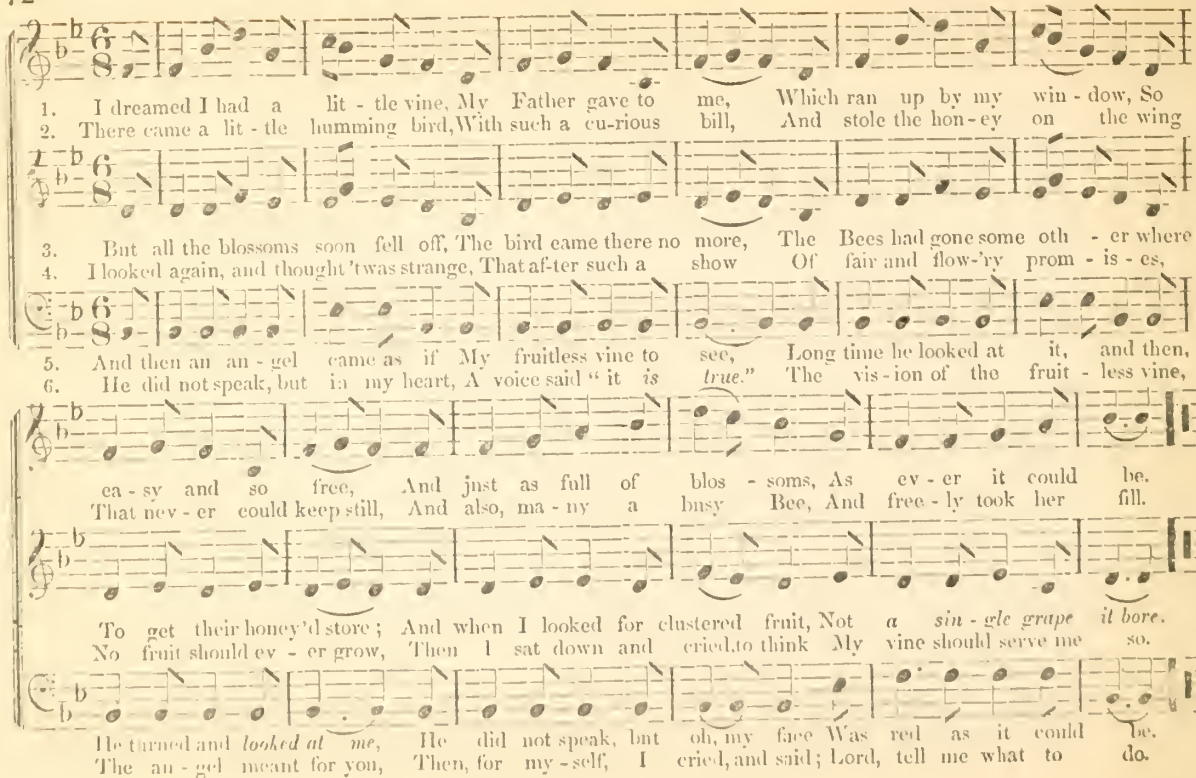 72
1. I dreamed I had a lit - tle vine, My Father gave to me, Which ran up by my win - dow, So
2. There came a lit - tle humming bird, With such a cu-rious bill, And stole the hon - ey on the wing
3. But all the blossoms soon fell off, The bird came there no more, The Bees had gone some oth - er where
4. I looked again, and thought 'twas strange, That af-ter such a show Of fair and flow-'ry prom - is - es,
5. And then an an - gel came as if My fruitless vine to see, Long time he looked at it, and then,
6. He did not speak, but in my heart, A voice said "it is true." The vis - ion of the fruit - less vine,
ea - sy and so free, And just as full of blos - soms, As ev - er it could be.
That nev - er could keep still, And also, ma - ny a busy Bee, And free - ly took her fill.
To get their honey'd store; And when I looked for clustered fruit, Not a sin - gle grape it bore.
No fruit should ev - er grow, Then I sat down and cried, to think My vine should serve me so.
He turned and looked at me, He did not speak, but oh, my face Was red as it could be.
The an - gel meant for you, Then, for my - self, I cried, and said; Lord, tell me what to do.